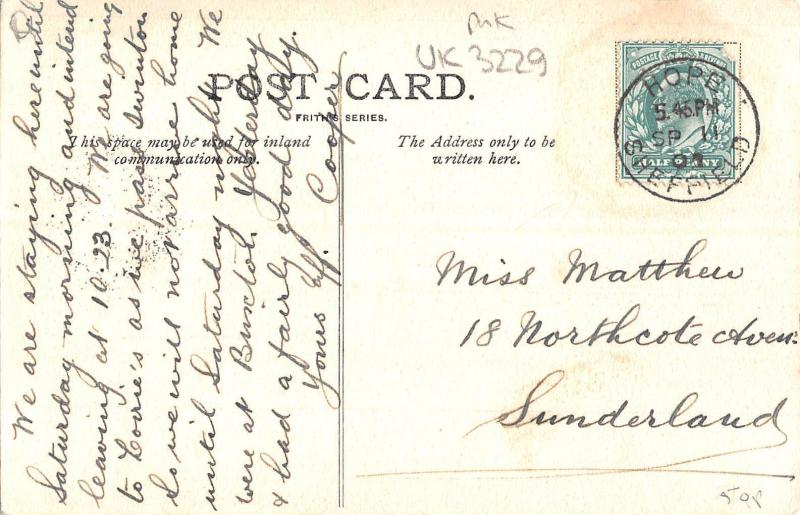 PMK
UK 3229
POST CARD.
FRITH'S SERIES.
This space may be used for inland
communication only.
The Address only to be
written here.
POSTAGE REVENUE
HALFPENNY
HOPE
5.45.PM
SP 11
SHEFFIELD
We are staying here until
Saturday morning and intend
leaving at 10.23. We are going
to as we pass Swinton
so we will not arrive home
until Saturday night. We
were at Buxton Yesterday
& had a fairly good day.
Yours Eff. Cooper
Miss Matthew
18 Northcote Aven:
Sunderland
50p